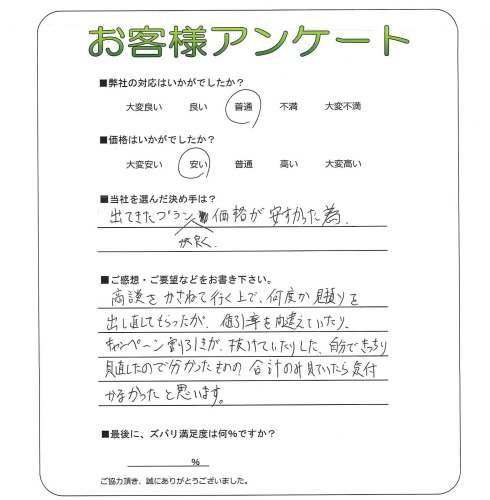 お客様アンケート
■弊社の対応はいかがでしたか?
大変良い 良い 普通 不満 大変不満
■価格はいかがでしたか?
大変安い 安い 普通 高い 大変高い
■当社を選んだ決め手は?
出てきたプラン 価格が安すかった為.
が良く.
■ご感想・ご要望などをお書き下さい。
商談をかさねて行く上で、何度か見積りを
出し直してもらったが、値引率を間違えていたり、
キャンペーン割引きが、抜けていたりした、自分できっちり
見直したので分かったものの、合計のみ見ていたら気付
かなかったと思います。
■最後に、ズバリ満足度は何%ですか?
%
ご協力頂き、誠にありがとうございました。